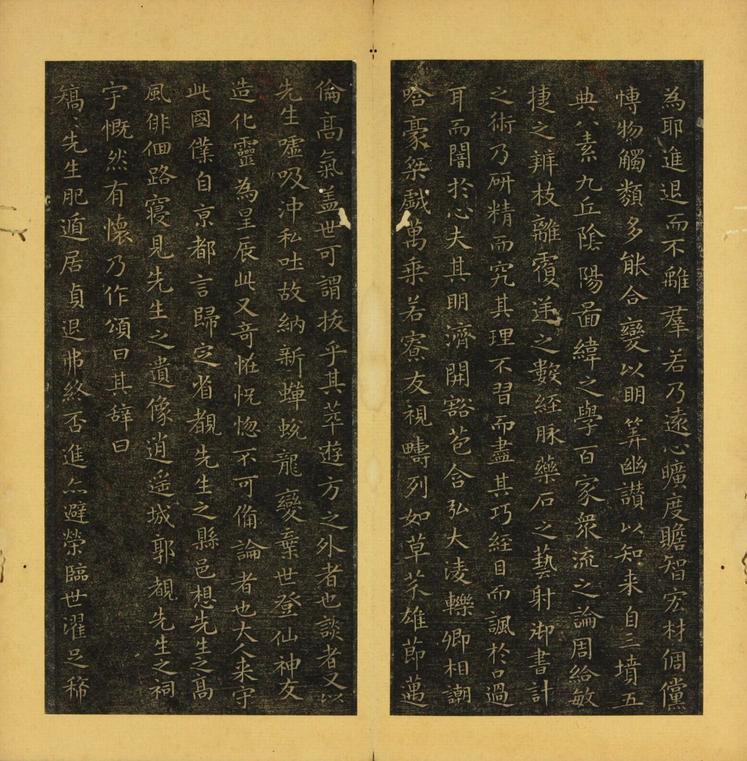 為耶進退而不離羣若乃遠心曠度贍智宏材倜儻
愽物觸類多能合變以明筭幽讃以知来自三墳五
典八素九丘陰陽啚緯之學百家衆流之論周給敏
捷之辨枝離覆逆之數經脉藥石之藝射御書計
之術乃研精而究其理不習而盡其巧經目而諷於口過
耳而闇於心夫其明濟開豁苞含弘大淩轢卿相謿
哈豪桀戯萬乗若寮友視疇列如草芥雄節邁
倫高氣盖世可謂拔乎其萃遊方之外者也談者又以
先生噓吸沖和吐故納新蟬蛻龍變棄世登仙神友
造化靈為星辰此又奇怪怳惚不可備論者也大人来守
此國僕自京都言歸定省覩先生之縣邑想先生之高
風俳佪路寢見先生之遺像逍遥城郭覩先生之祠
宇慨然有懷乃作頌曰其辞曰
矯〻先生肥遁居貞退弗終否進亦避榮臨世濯足稀